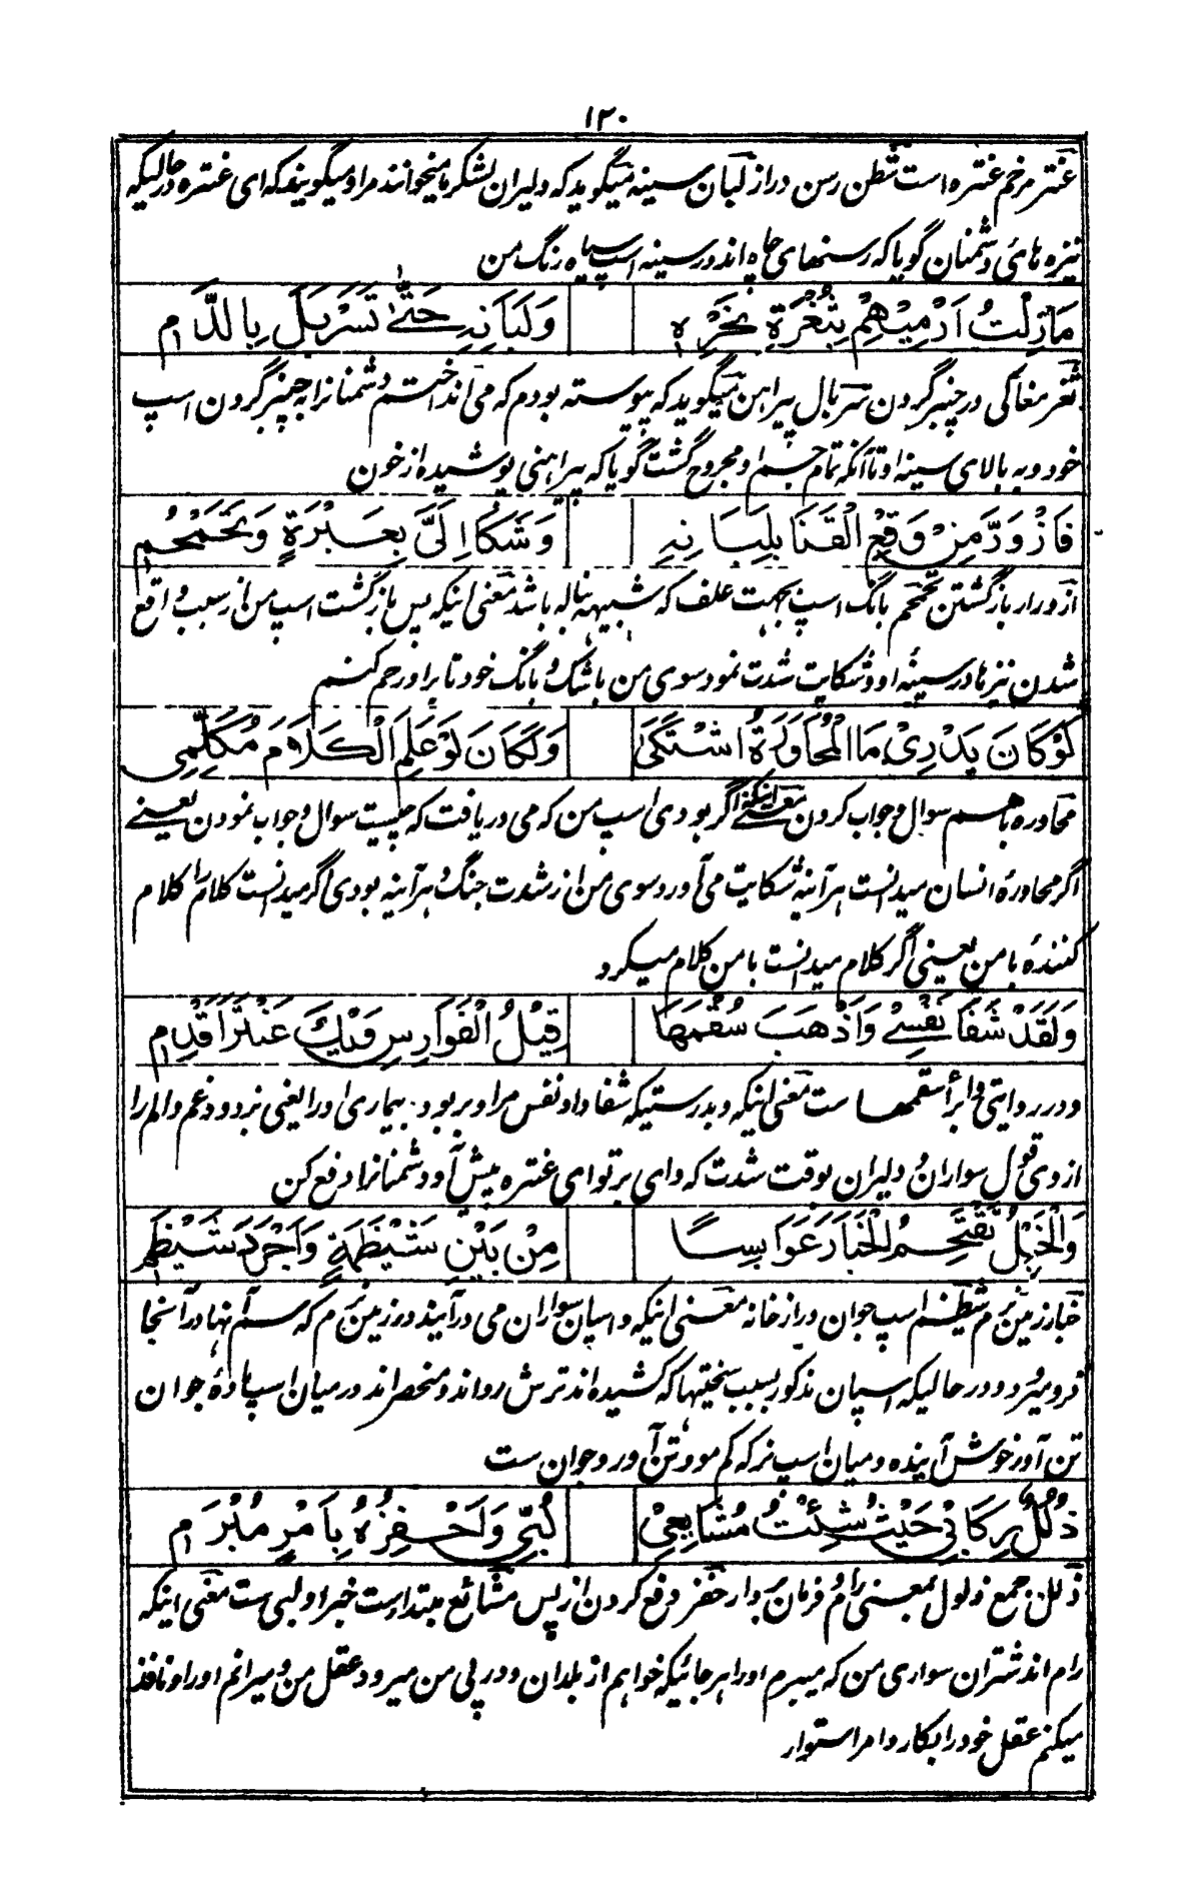 ۱۲۰
عنتر مرخم عنتره است شطن رسن دراز لبان سینه میگوید که دلیران لشکر ما میخوانند مرا و میگویند که ای عنتره در حالیکه
نیزه هائی دشمنان گویا که رسنهای چاه اند در سینه اسپ سیاه رنگ من
مَازِلْتُ اَرْمِيْهِمْ بِثُغْرَةِ نَحْرِهٖ وَلَبَانِهٖ حَتّٰى تَسَرْبَلَ بِالدَّامِ
ثغر مغاکی در چنبر گردن سربال پیراهن میگوید که پیوسته بودم که می انداختم دشمنانرا بچنبر گردن اسپ
خود و به بالای سینه او تا آنکه تمام جسم او مجروح گشت گویا که پیراهنی پوشیده از خون
فَازْوَرَّ مِنْ وَقْعِ الْقَنَا بِلَبَانِهٖ وَشَكَا اِلَیَّ بِعَبْرَةٍ وَتَحَمْحُمِ
ازورار بازگشتن تحمحم بانگ اسپ بجهت علف که شبیه بناله باشد معنی اینکه پس بازگشت اسپ من از سبب واقع
شدن نیزها در سینه او و شکایت شدت نمود سوی من باشک و بانگ خود تا براو رحم کنم
لَوْكَانَ يَدْرِيْ مَا الْمُحَاوَرَةُ اشْتَكَىٰ وَلَكَانَ لَوْعَلِمَ الْكَلَامَ مُكَلِّمِي
محاوره باهم سوال و جواب کردن معنی اینکه اگر بودی اسپ من که می دریافت که چیست سوال و جواب نمودن یعنی
اگر محاورهٔ انسان میدانست هرآئینه شکایت می آورد سوی من از شدت جنگ و هرآینه بودی اگر میدانست کلام را کلام
کنندهٔ بامن یعنی اگر کلام میدانست بامن کلام میکرد
وَلَقَدْ شَفَا نَفْسِيْ وَاَذْهَبَ سُقْمَهَا قِيْلُ الْفَوَارِسِ وَيْكَ عَنْتَرَ اَقْدِمِ
و در روایتی و ابرأ سقمها ست معنی اینکه و بدرستیکه شفا داد نفس مرا و بر بود بیماری اورا یعنی نزدود غم و الم را
از وی قول سواران و دلیران بوقت شدت که وای بر تو ای عنتره پیش آ و دشمنانرا دفع کن
وَالْخَيْلُ تَقْتَحِمُ الْخَبَارَ عَوَابِسًا مِنْ بَيْنِ شَيْظَمَةٍ وَاَجْرَدَ شَيْظَمِ
خبار زمین نرم شیظم اسپ جوان دراز خانه معنی اینکه و اسپان سواران می درآیند در زمین نرم که سم آنها در آنجا
فرو میرود در حالیکه اسپان مذکور بسبب سختیها که کشیده اند ترش رو اند و منحصر اند در میان اسپ مادهٔ جوان
تن آور خوش آینده و میان اسپ نر که کم مو و تن آور و جوان ست
ذُلُلٌ رِكَابِيْ حَيْثُ شِئْتُ مُشَايِعِيْ لُبِّيْ وَاَحْفِزُهُ بِاَمْرٍ مُبْرَمِ
ذلل جمع ذلول بمعنی رام و فرمان بردار حفز دفع کردن از پس مشائع مبتداست خبر او لبی ست معنی اینکه
رام اند شتران سواری من که میبرم اورا هرجائیکه خواهم از بلدان و در پی من میرود عقل من و میرانم اورا و نافذ
میکنم عقل خود را بکار و امر استوار